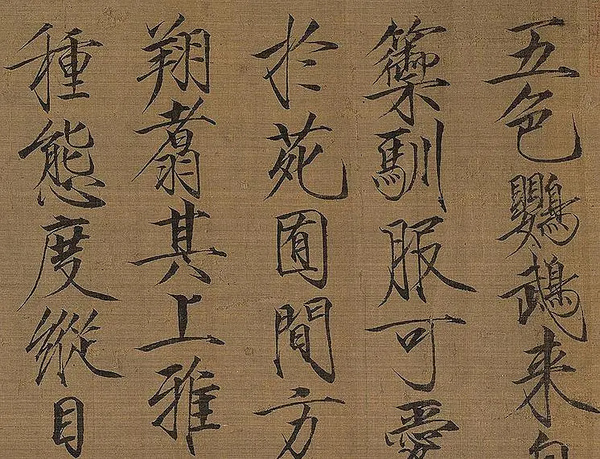 五色鸚鵡来自
籞馴服可愛
扵苑囿間方
翔翥其上雅
種態度縱目